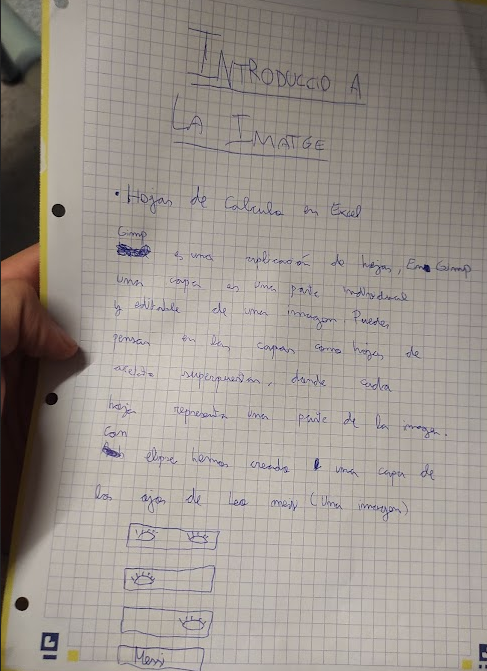 INTRODUCCIO A
LA IMATGE
• Hojas de Calculo en Excel
Gimp
es una aplicación de hojas, En Gimp
una capa es una parte individual
y editable de una imagen Puedes
pensar en las capas como hojas de
acetato superpuestas, donde cada
hoja representa una parte de la imagen.
Con
elipse hemos creado una capa de
los ojos de Leo messi (Una imagen)
Messi